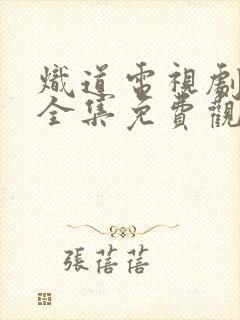 熾道電視劇
全集免費觀
張蓓蓓